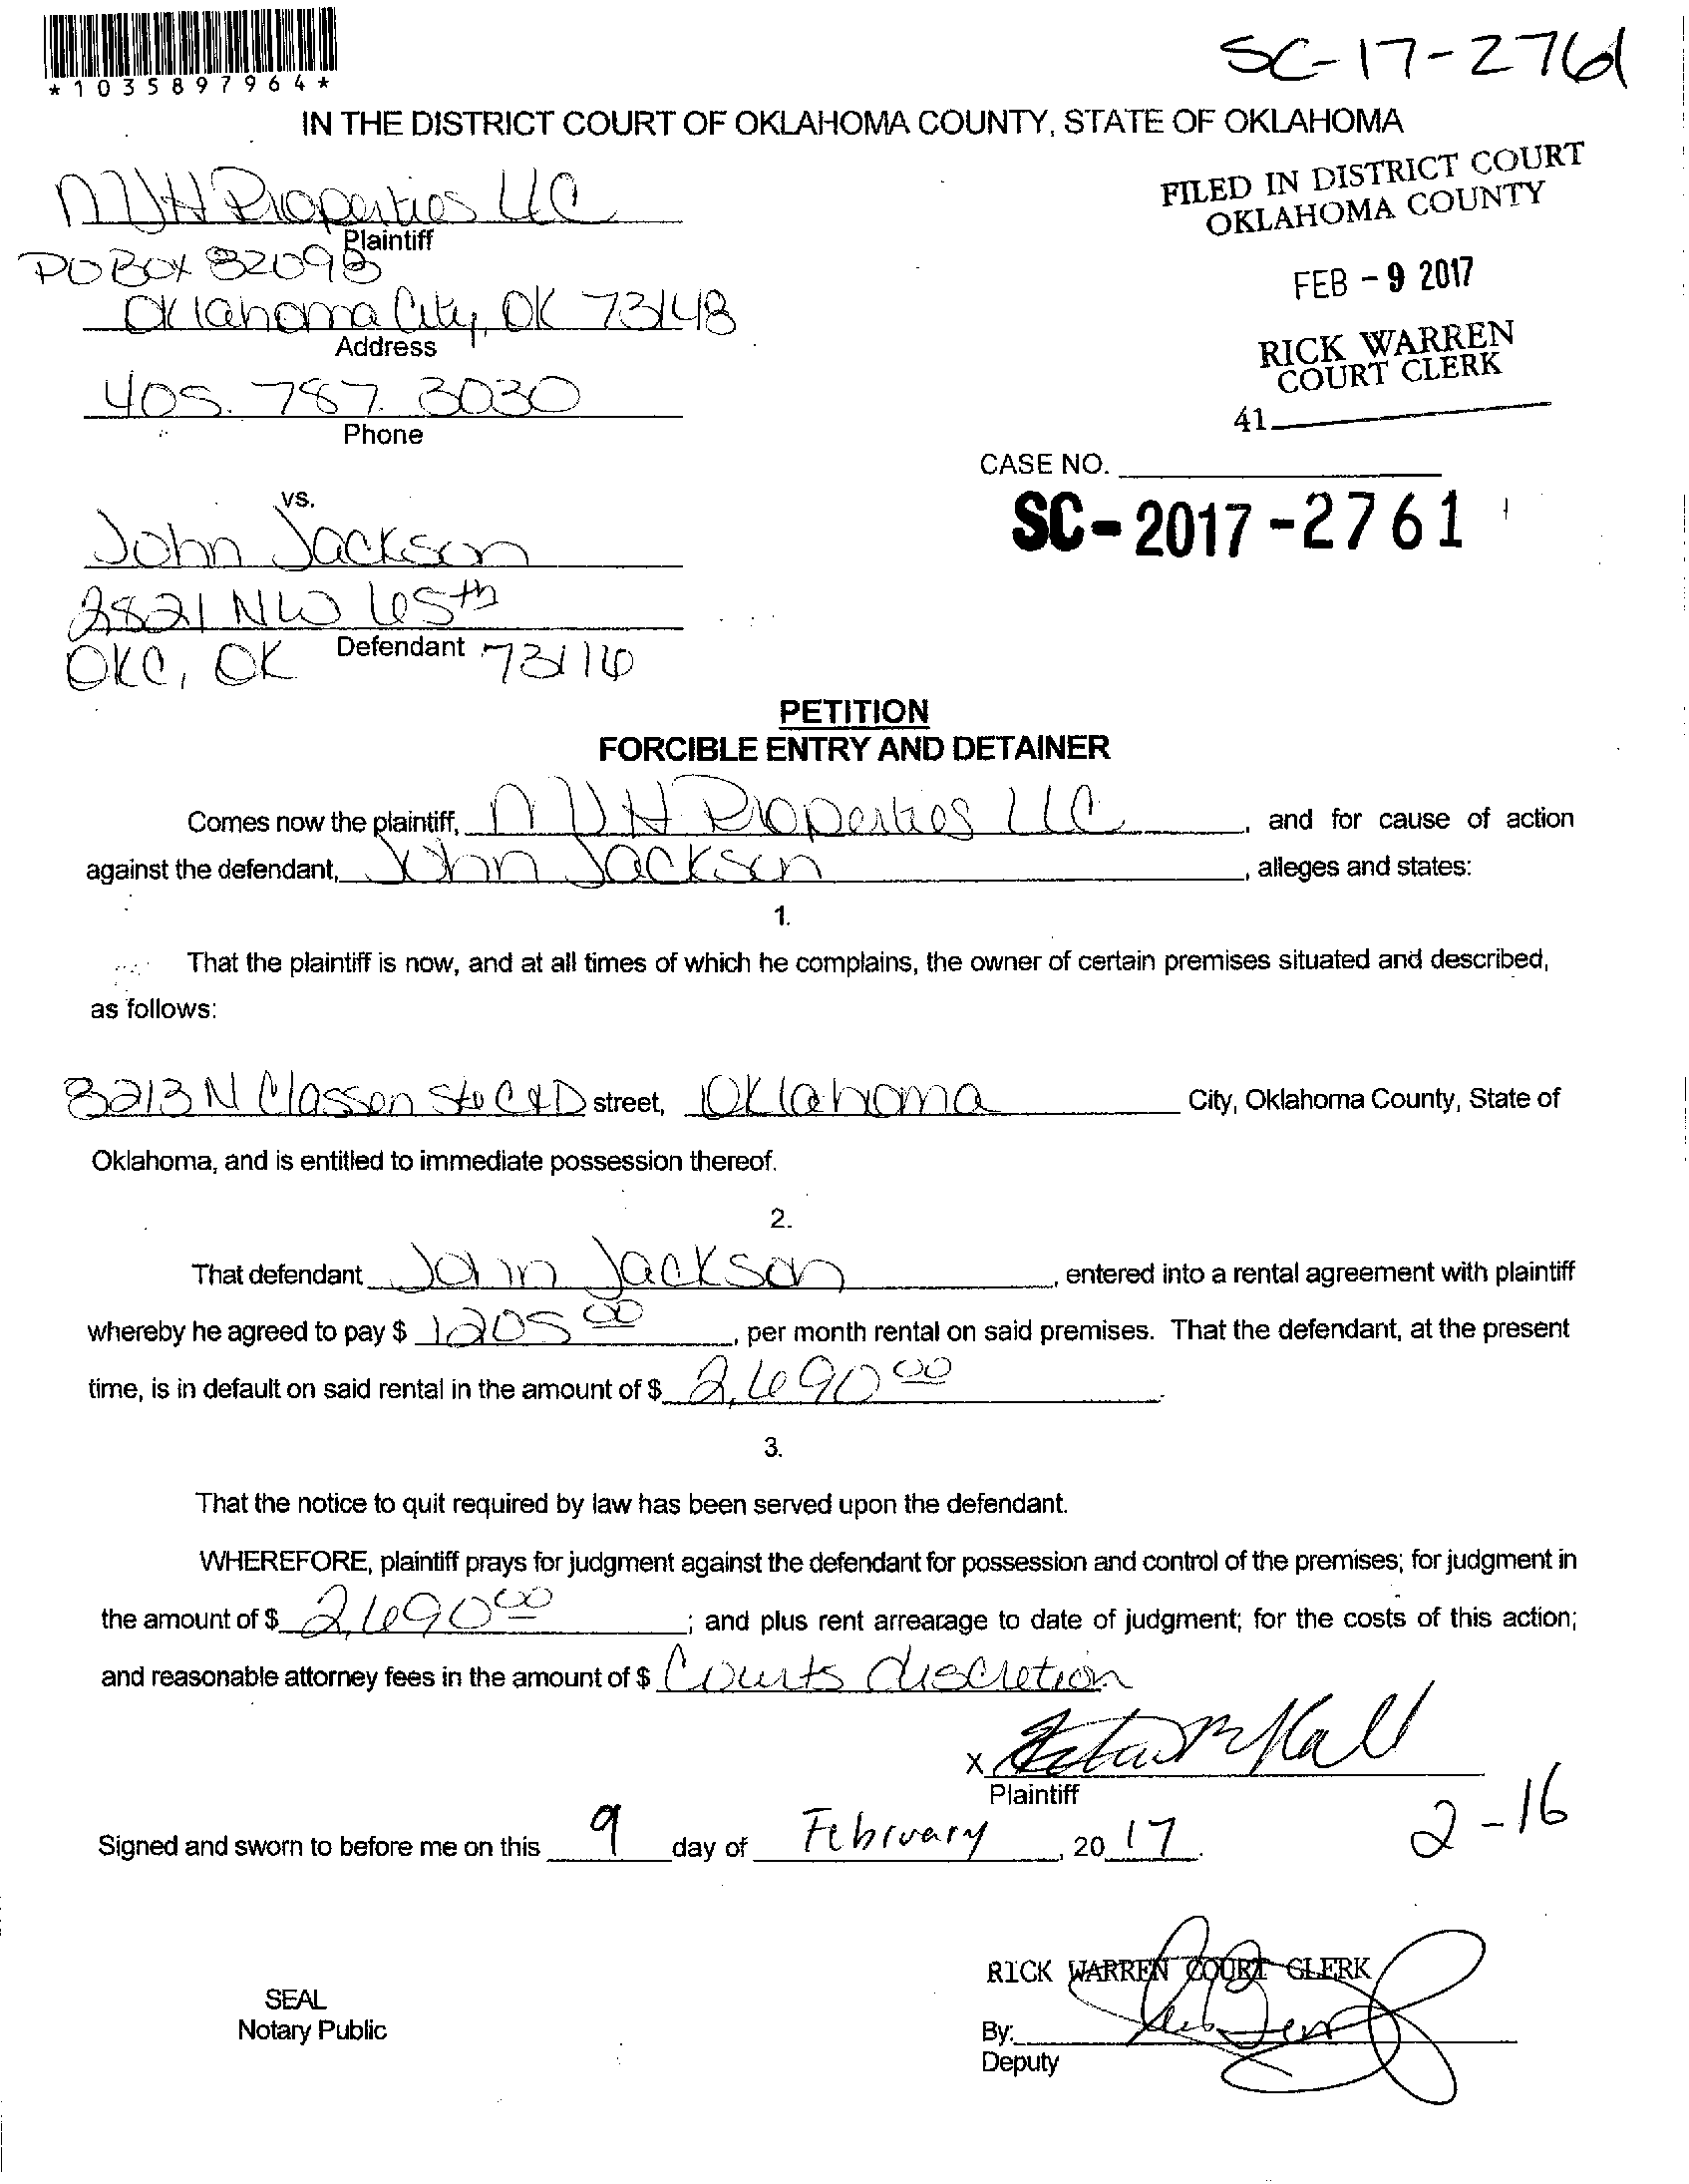 *1035897964*
SC-17-2761
IN THE DISTRICT COURT OF OKLAHOMA COUNTY, STATE OF OKLAHOMA
FILED IN DISTRICT COURT
OKLAHOMA COUNTY
FEB - 9 2017
RICK WARREN
COURT CLERK
41
Properties LLC
Plaintiff
PO Box 82093
Oklahoma City, OK 73148
Address
405. 787. 3030
Phone
CASE NO.
SC-2017-2761
vs.
John Jackson
2821 NW 65th
Defendant
OKC, OK 73116
PETITION
FORCIBLE ENTRY AND DETAINER
Comes now the plaintiff, Properties LLC, and for cause of action
against the defendant, John Jackson, alleges and states:
1.
That the plaintiff is now, and at all times of which he complains, the owner of certain premises situated and described,
as follows:
3213 N Classen Ste C&D street, Oklahoma City, Oklahoma County, State of
Oklahoma, and is entitled to immediate possession thereof.
2.
That defendant John Jackson, entered into a rental agreement with plaintiff
whereby he agreed to pay $ 1205 00, per month rental on said premises. That the defendant, at the present
time, is in default on said rental in the amount of $ 2,690 00.
3.
That the notice to quit required by law has been served upon the defendant.
WHEREFORE, plaintiff prays for judgment against the defendant for possession and control of the premises; for judgment in
the amount of $ 2,690 00; and plus rent arrearage to date of judgment; for the costs of this action;
and reasonable attorney fees in the amount of $ Courts discretion
X
Plaintiff
2-16
Signed and sworn to before me on this 9 day of February, 2017.
RICK WARREN COURT CLERK
SEAL
Notary Public
By:
Deputy